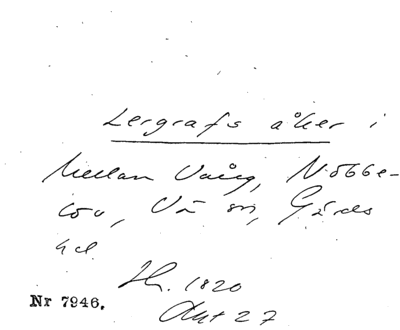 Lergrafs åker i
Mellan Vång, Nöbbe-
löv, Gårds
hd.
Lh. 1820
Akt 27
Nr 7946.